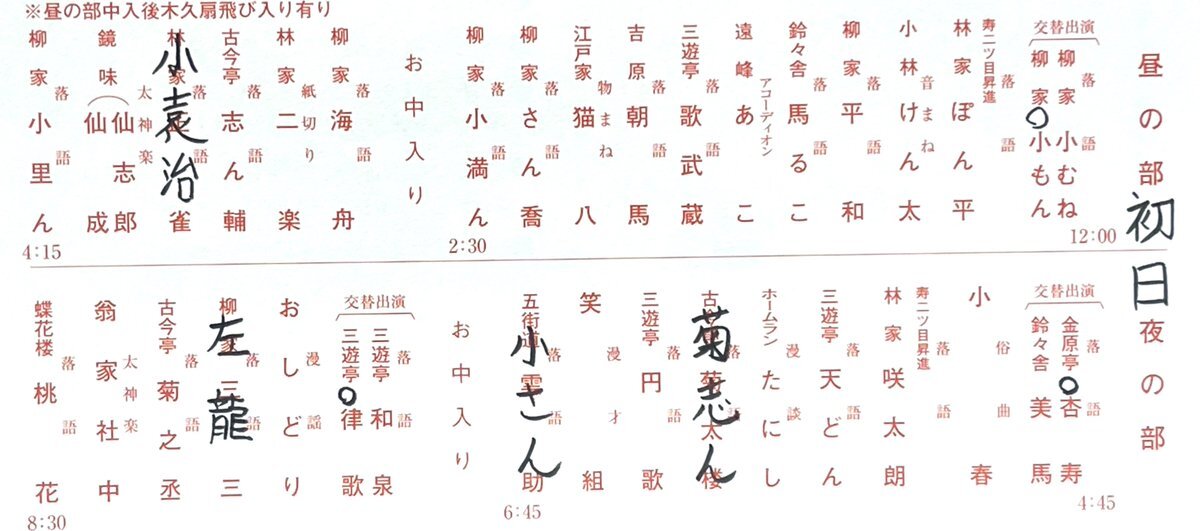 ※昼の部中入後木久扇飛び入り有り
昼の部
初日
交替出演
落語
柳家小むね
柳家○小もん
12:00
寿二ツ目昇進
落語
林家ぽん平
音まね
小林けん太
落語
柳家平和
落語
鈴々舎馬るこ
アコーディオン
遠峰あこ
落語
三遊亭歌武蔵
落語
吉原朝馬
物まね
江戸家猫八
落語
柳家さん喬
落語
柳家小満ん
2:30
お中入り
落語
柳家海舟
紙切り
林家二楽
落語
古今亭志ん輔
落語
林家正雀
小袁治
太神楽
鏡味仙志郎
仙成
落語
柳家小里ん
4:15
夜の部
交替出演
落語
金原亭○杏寿
鈴々舎美馬
4:45
俗曲
小春
寿二ツ目昇進
落語
林家咲太朗
落語
三遊亭天どん
漫談
ホームランたにし
落語
古今亭菊太楼
菊志ん
落語
三遊亭円歌
漫才
笑組
落語
五街道雲助
小さん
6:45
お中入り
交替出演
落語
三遊亭和泉
三遊亭○律歌
漫謡
おしどり
落語
柳家三三
左龍
落語
古今亭菊之丞
太神楽
翁家社中
落語
蝶花楼桃花
8:30